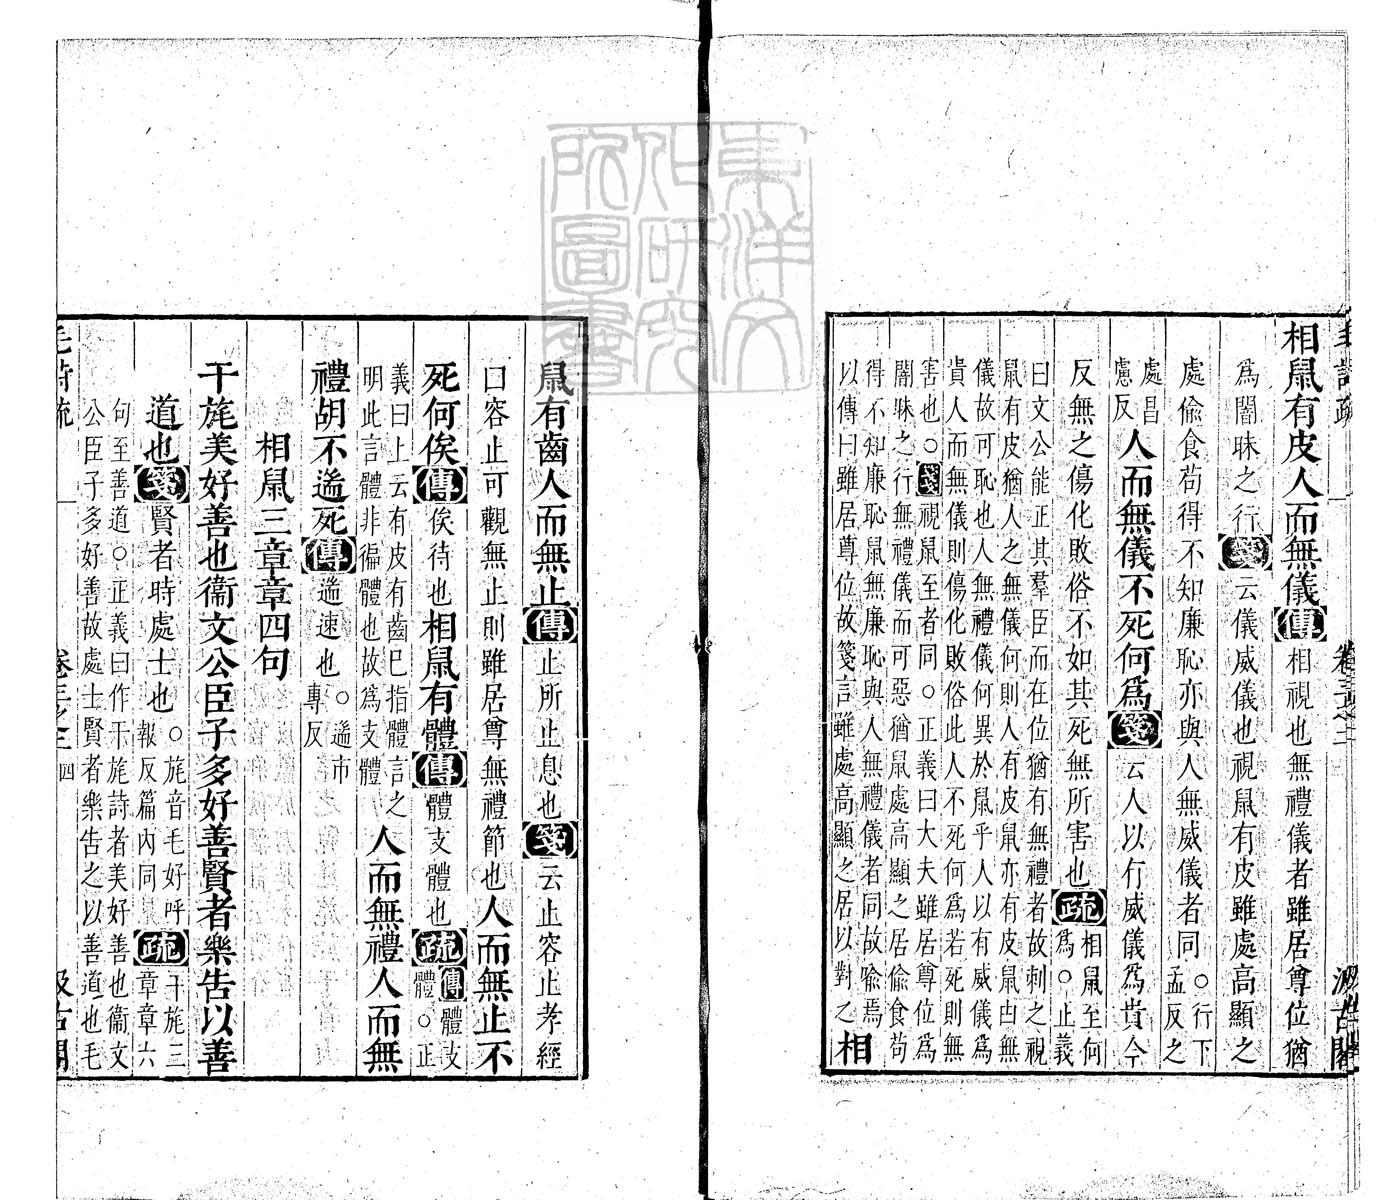 相鼠有皮人而無儀傳相視也無禮儀者雖居尊位猶
爲闇昧之行箋云儀威儀也視鼠有皮雖處高顯之
處偷食苟得不知廉恥亦與人無威儀者同○行下孟反之
處昌慮反人而無儀不死何爲箋云人以有威儀爲貴今
反無之傷化敗俗不如其死無所害也疏相鼠至何爲○止義
曰文公能正其羣臣而在位猶有無禮者故刺之視
鼠有皮猶人之無儀何則人有皮鼠亦有皮鼠凷無
儀故可恥也人無禮儀何異於鼠乎人以有威儀爲
貴人而無儀則傷化敗俗此人不死何爲若死則無
害也○箋視鼠至者同○正義曰大夫雖居尊位爲
闇昧之行無禮儀而可惡猶鼠處高顯之居偷食苟
得不知廉恥鼠無廉恥與人無禮儀者同故喻焉
以傳曰雖居尊位故箋言雖處高顯之居以對之相
鼠有齒人而無止傳止所止息也箋云止容止孝經
曰容止可觀無止則雖居尊無禮節也人而無止不
死何俟傳俟待也相鼠有體傳體支體也疏傳體支體○正
義曰上云有皮有齒巳指體言之
明此言體非徧體也故爲支體人而無禮人而無
禮胡不遄死傳遄速也○遄市專反
相鼠三章章四句
干旄美好善也衞文公臣子多好善賢者樂告以善
道也箋賢者時處士也○旄音毛好呼報反篇內同疏干旄三章章六
句至善道○正義曰作干旄詩者美好善也衞文
公臣子多好善故處士賢者樂告之以善道也毛
毛詩疏 卷三之二 四 汲古閣